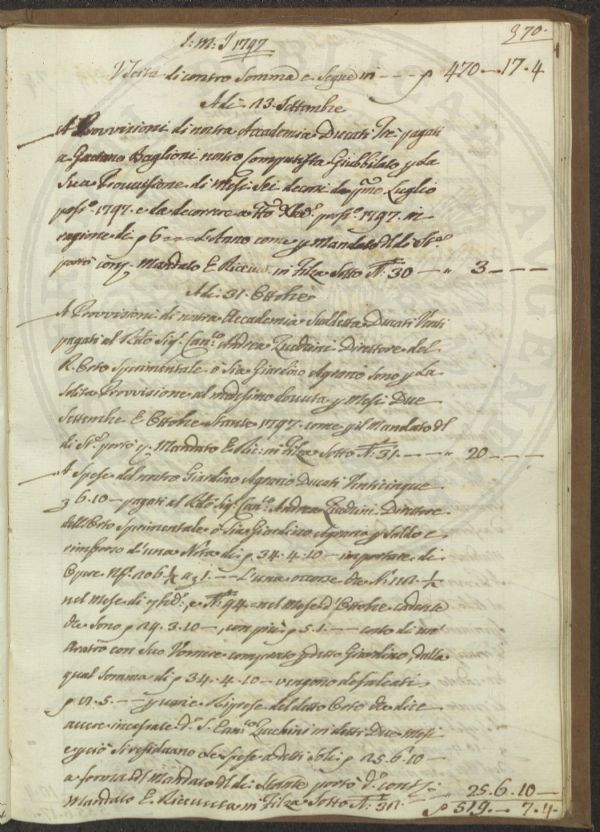 370.
I: M: J 1797
Verso di contro Somma e Segue in --- p 470 -- 17 - 4
A dì 13 Settembre
A Provvisioni di nostra Accademia Ducati Tre pagati
a Gaetano Baglioni nostro Computista Giubbilato p la
Sua Provvisione di Mesi Sei decorsi da pmo Luglio
1797. e da decorrere a tto Xbre 1797. in
ragione di p 6 -- l'Anno come p Mandato
Mandato E Ricevuta in Filza Sotto N: 30 -- " 3 ---
A dì 31 Ottobre
A Provvisioni di nostra Accademia Suddetta Ducati Venti
pagati al Rdo Sigr Canco Andrea Zucchini Direttore del
R. Orto Sperimentale o Sia Giardino Agrario Sono p La
Solita Provvisione al medesimo dovuta p Mesi Due
Settembre E Ottobre Stante 1797. come p il Mandato
Mandato E Ric: in Filza Sotto N: 31. --- " 20 ---
A Spese del nostro Giardino Agrario Ducati Venticinque
3 6.10 -- pagati al Rdo Sigr Canco Andrea Zucchini Direttore
dell'Orto Sperimentale o Sia Giardino Agrario p Saldo e
rimborso d'una Nota di p 34. 4. 10 -- importare di
Opere N: 206 1/2 a 3 1. -- L'una
nel Mese di e N: 94. nel Mese d'Ottobre cadente
che Sono p 24. 3. 10 --, con più p 5. 1. -- costo di un'
Aratro con Suo Vomere comprato p detto Giardino, dalla
qual Somma di p 34. 4. 10 -- vengono defalcati
p 12. 5. -- p varie Riprese del detto Orto che dice
avere incassate do Sr Canco Zucchini in detti Due Mesi
e perciò Si residuano Le Spese a detti Soli p 25. 6. 10 --
a forma del Mandato
Mandato E. Ricevuta in Filza Sotto N: -- " 25. 6. 10 --
p 519. -- 7. 4 --